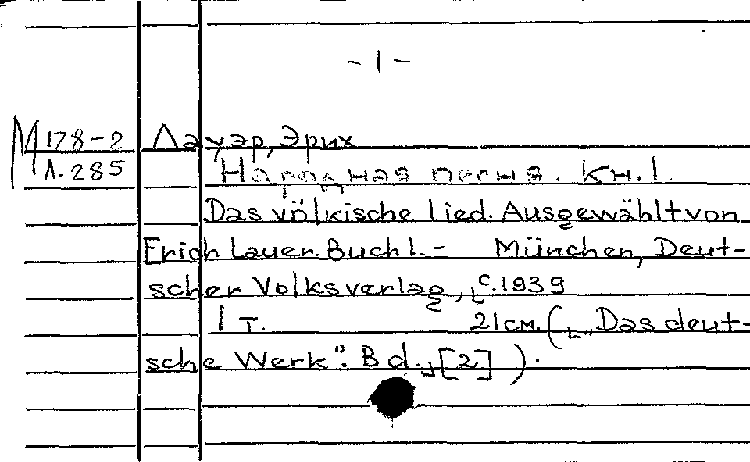 - 1 -
М 178-2 Лауэр, Эрих
Л.285 Народная песня. Кн. 1.
Das völkische Lied. Ausgewählt von
Erich Lauer. Buch 1. - München, Deut-
scher Volksverlag, с.1939
1 т. 21 см. („Das deut-
sche Werk". Bd. [2] ).